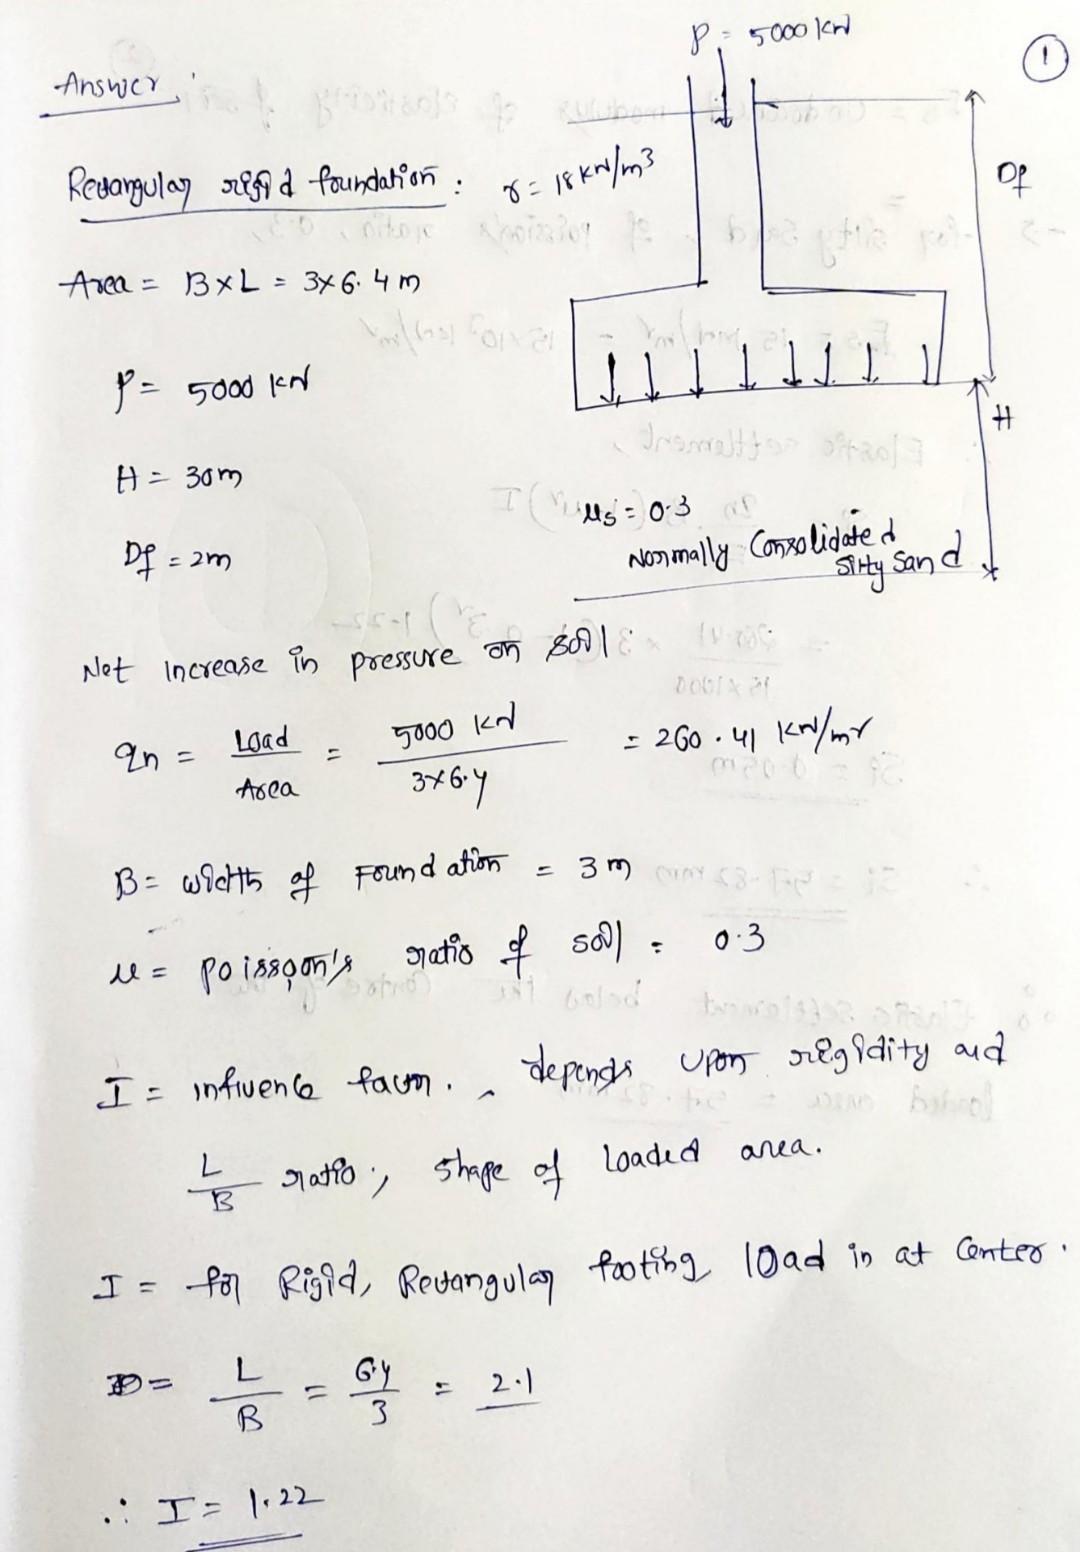 P = 5000 kN
①
Answer:
Rectangular rigid foundation : γ = 18 kN/m³
Df
Area = B×L = 3×6.4 m
P = 5000 kN
H
H = 30m
μs = 0.3
Df = 2m
Normally Consolidated
Silty Sand
Net increase in pressure on soil :
qn = Load / Area = 5000 kN / 3×6.4 = 260.41 kN/m²
B = width of Foundation = 3 m
μ = poissson's ratio of soil = 0.3
I = influence factor. , depends upon rigidity and
L/B ratio, shape of loaded area.
I = for Rigid, Rectangular footing load is at Center.
= L/B = 6.4/3 = 2.1
∴ I = 1.22